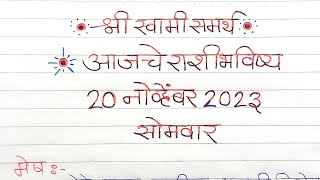 श्री स्वामी समर्थ
आजचे राशीभविष्य
20 नोव्हेंबर 2023
सोमवार
मेष :-